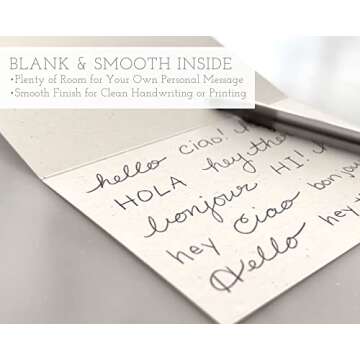 BLANK & SMOOTH INSIDE
•Plenty of Room for Your Own Personal Message
•Smooth Finish for Clean Handwriting or Printing
hello ciao!
HOLA hey
bonjour HI!
hey ciao
Hello hey